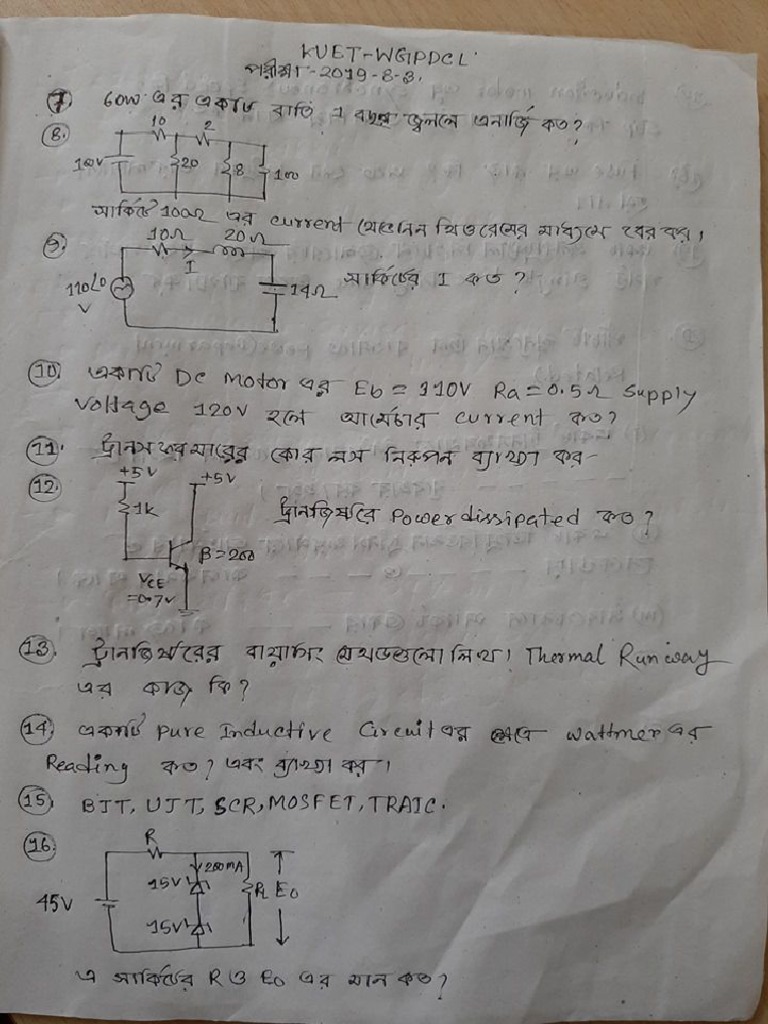 KUET-WGPDCL
পরীক্ষা-2019-8-3.
7 60W এর একটি বাতি 1 বছর জ্বললে এনার্জি কত?
8. 10 2
10V 20 8 100
সার্কিটে 100Ω এর current থেভেনিন থিওরেমের মাধ্যমে বের কর।
9. 10Ω 20Ω
I
110∠0 V 14Ω সার্কিটের I কত?
10. একটি DC Motor এর Eb = 110V Ra = 0.5Ω Supply
Voltage 120V হলে আর্মেচার current কত?
11. ট্রান্সফরমারের কোর লস নিরুপন ব্যাখ্যা কর-
12. +5V +5V
1k ট্রানজিস্টরে Power dissipated কত?
B=200
VCE
=0.7V
13. ট্রানজিস্টরের বায়াসিং মেথডগুলো লিখ। Thermal Runway
এর কাজ কি?
14. একটি Pure Inductive Circuit এর ক্ষেত্রে wattmer এর
Reading কত? এবং ব্যাখ্যা কর।
15 BJT, UJT, SCR, MOSFET, TRAIC.
16. R
200mA
45V 15V RL E0
15V
এ সার্কিটের R ও E0 এর মান কত?